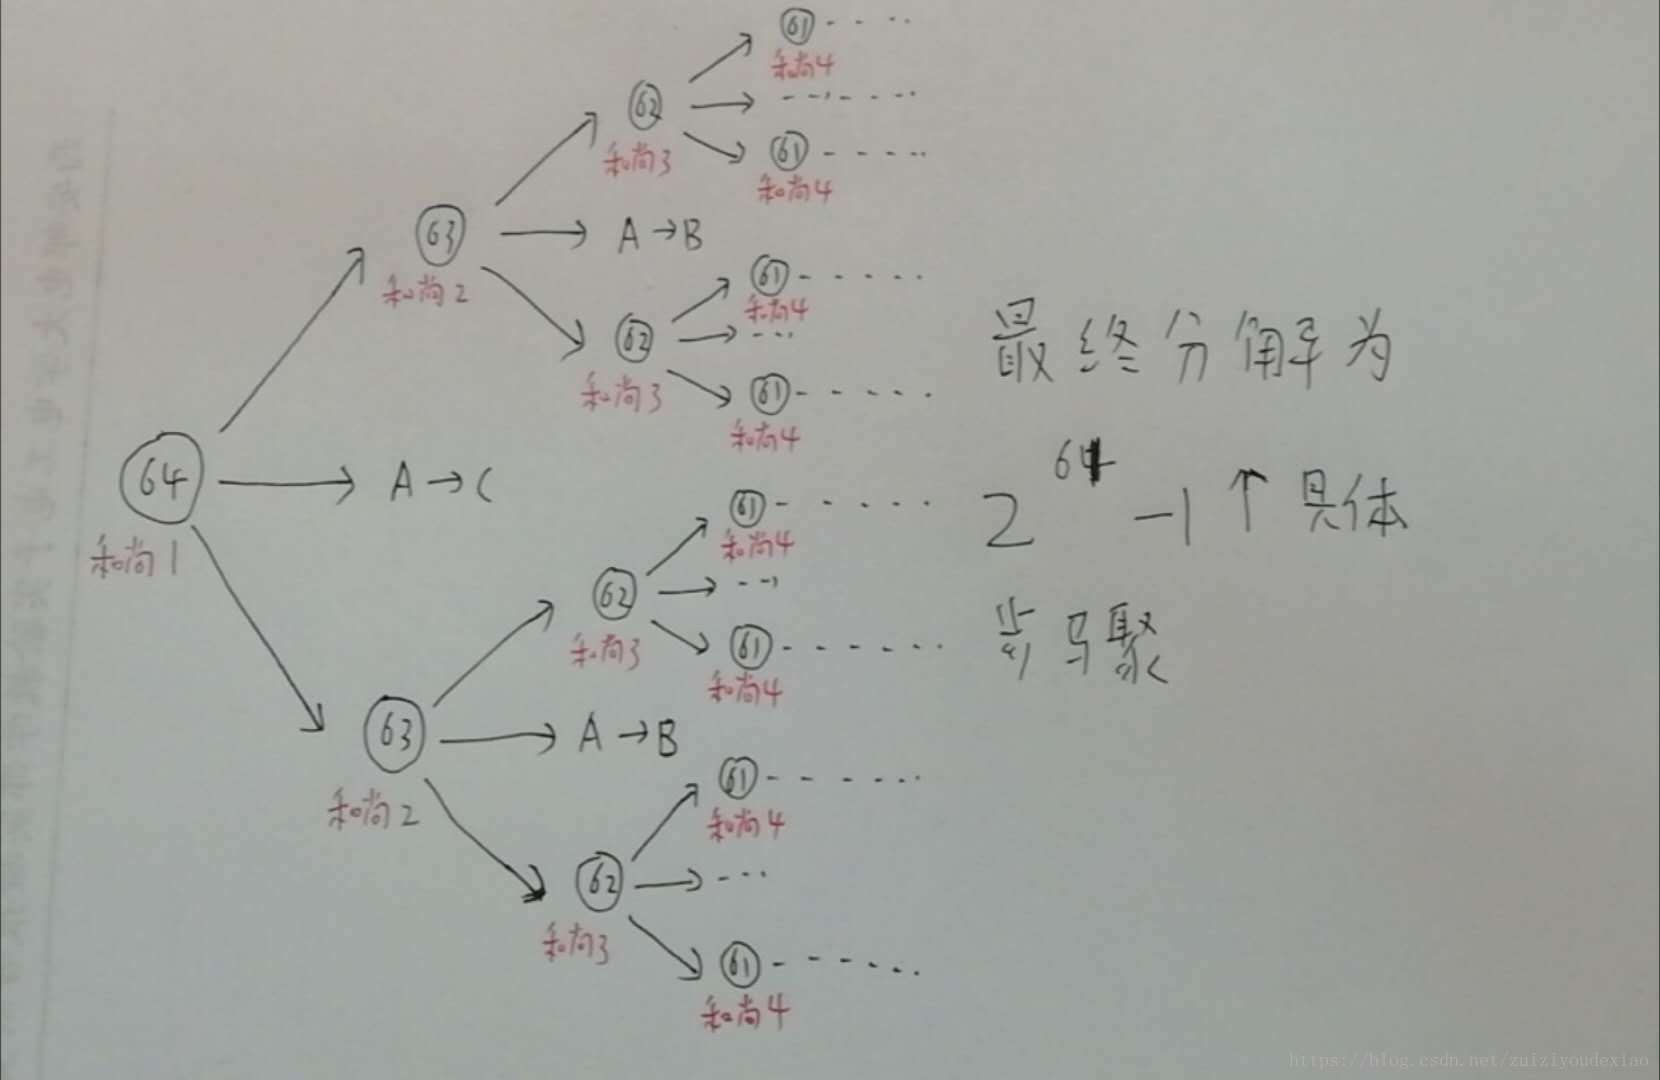 61
和尚4
62
和尚3
61
和尚4
63
和尚2
A→B
61
和尚4
62
和尚3
61
和尚4
64
和尚1
A→C
61
和尚4
62
和尚3
61
和尚4
63
和尚2
A→B
61
和尚4
62
和尚3
61
和尚4
最终分解为
2^64 -1个具体
步骤
https://blog.csdn.net/zuiziyoudexiao